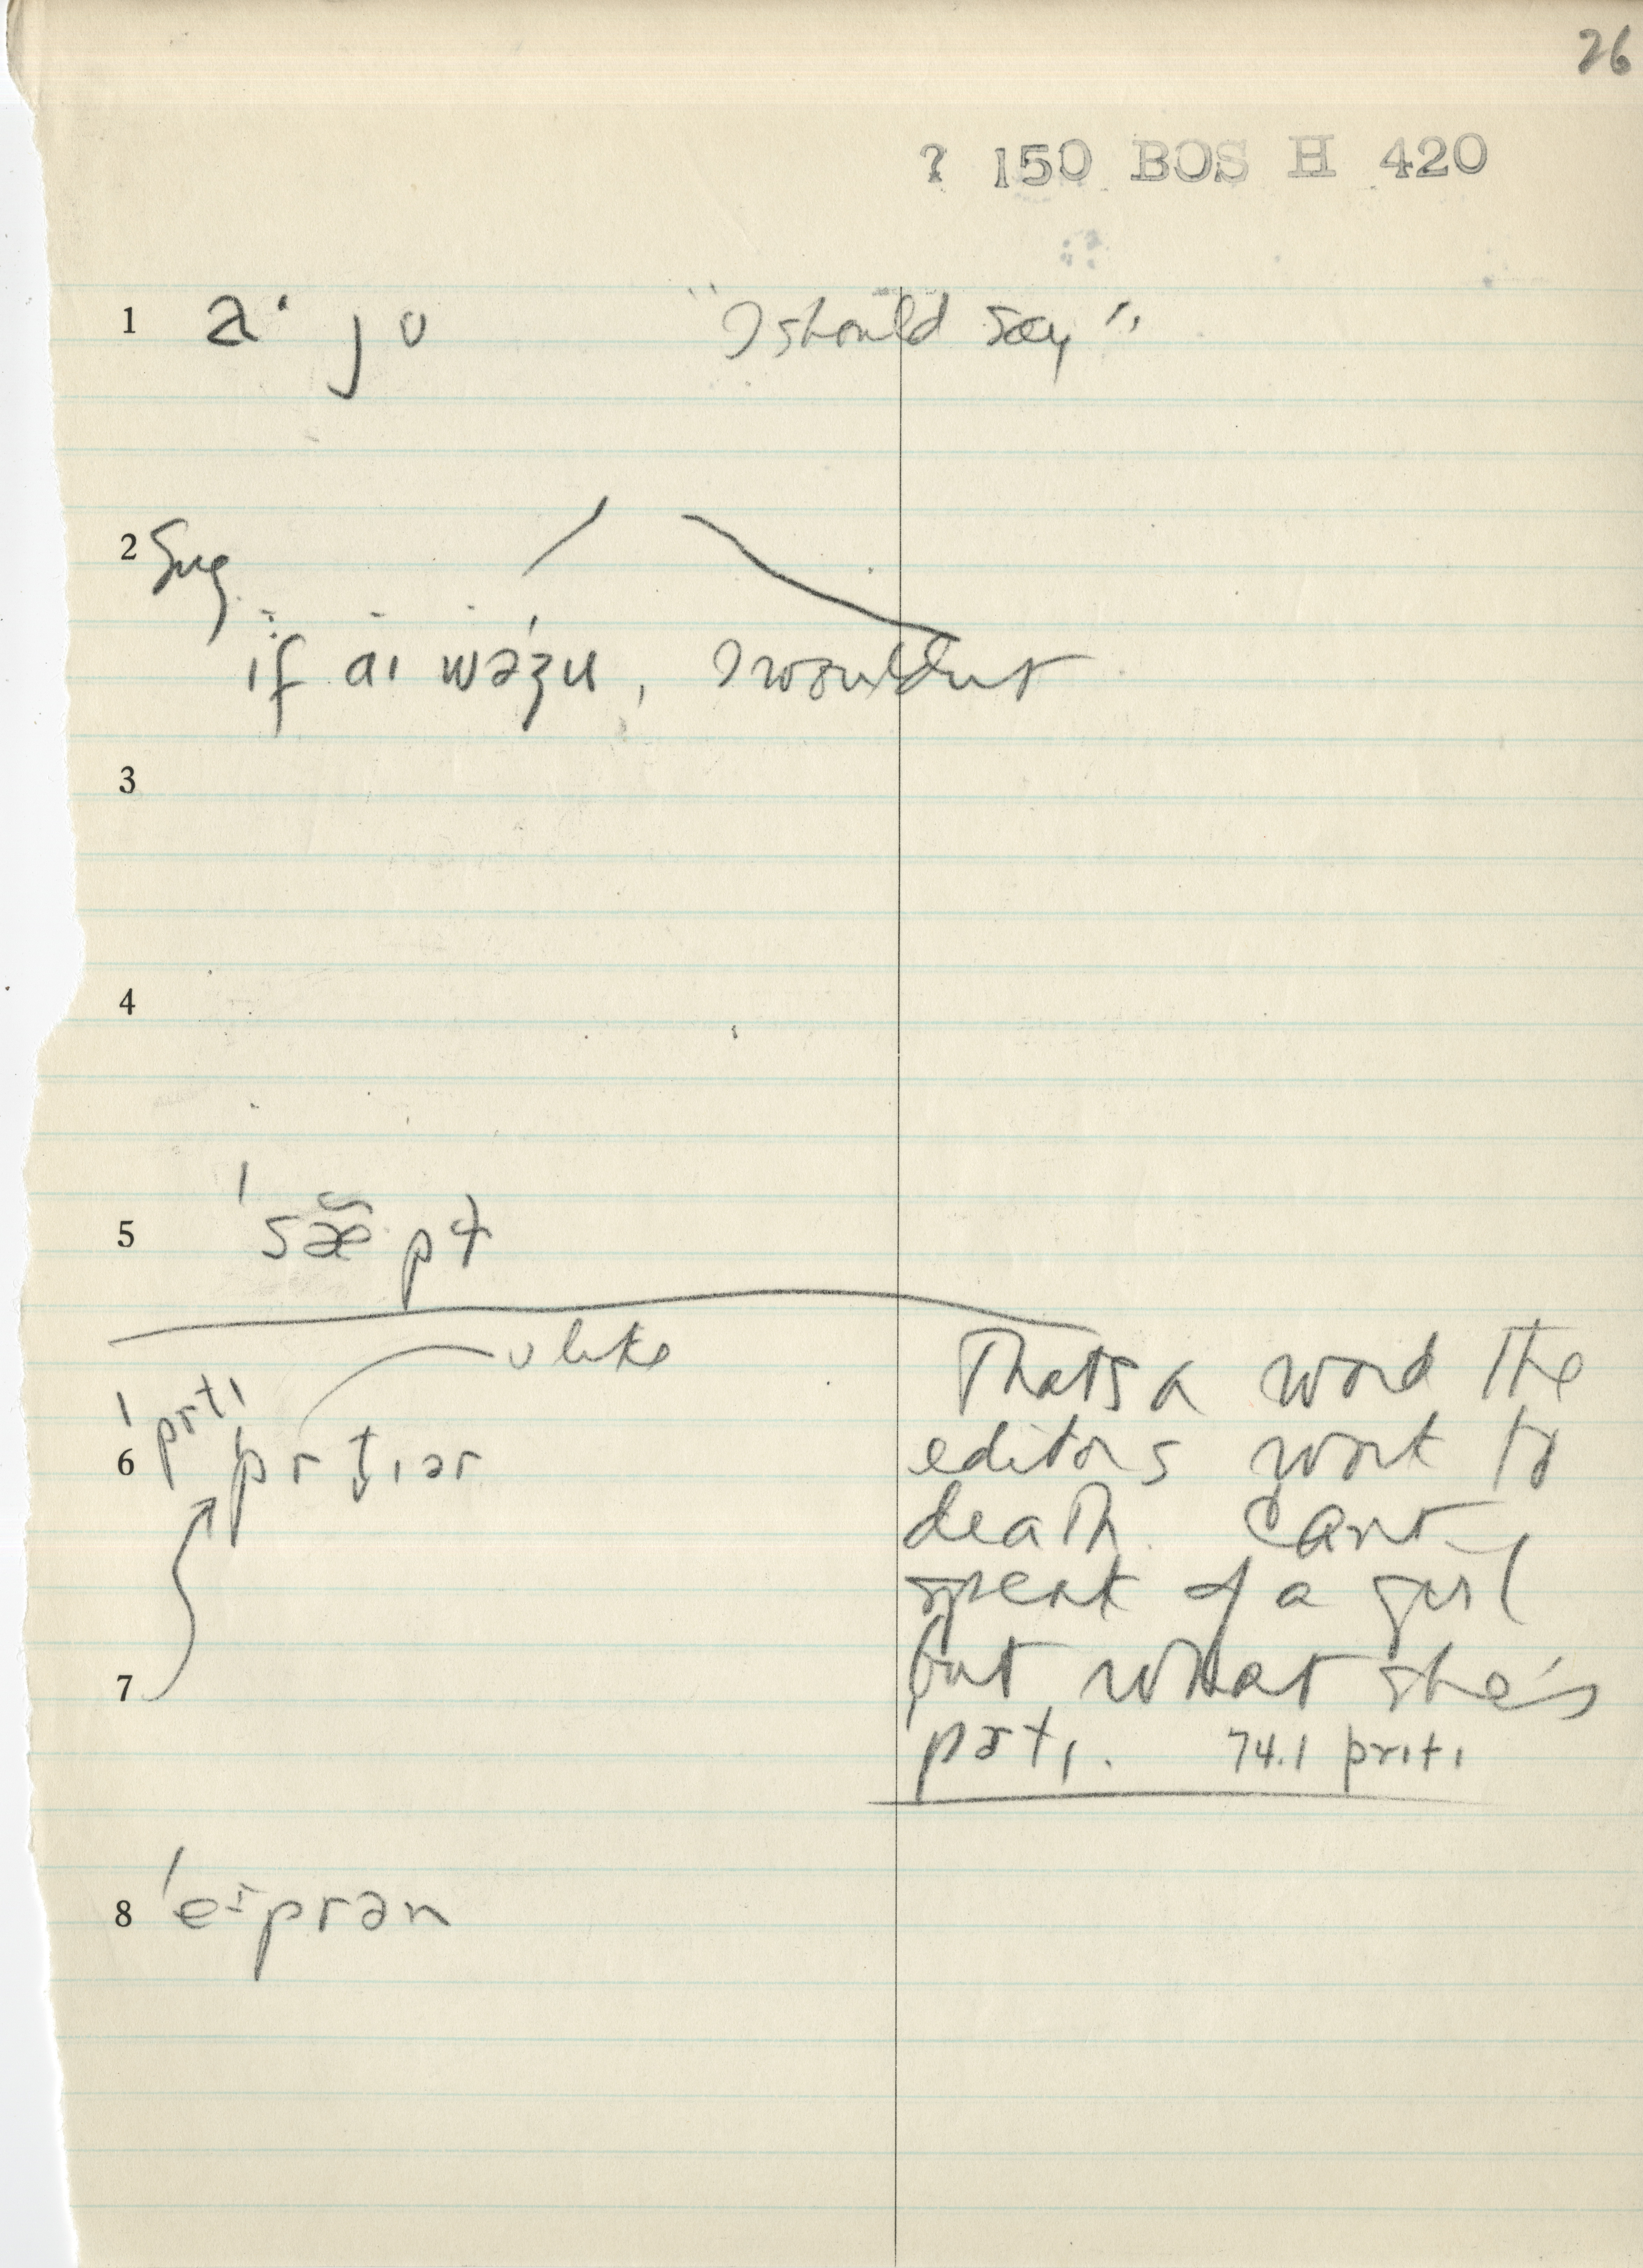 26
? 150 BOS H 420
1 "I should say"
2 Sug.
if aɪ wəʒu, I wouldnt
3
4
5 'sæ̃pɫ
ʊ like
prtɪ
6 prt̬ɪər
Thats a word the
editors work to
death. Cant
speak of a girl
but what she's
pɚtɪ. 74.1 prɪtɪ
7
8 'eɪprən